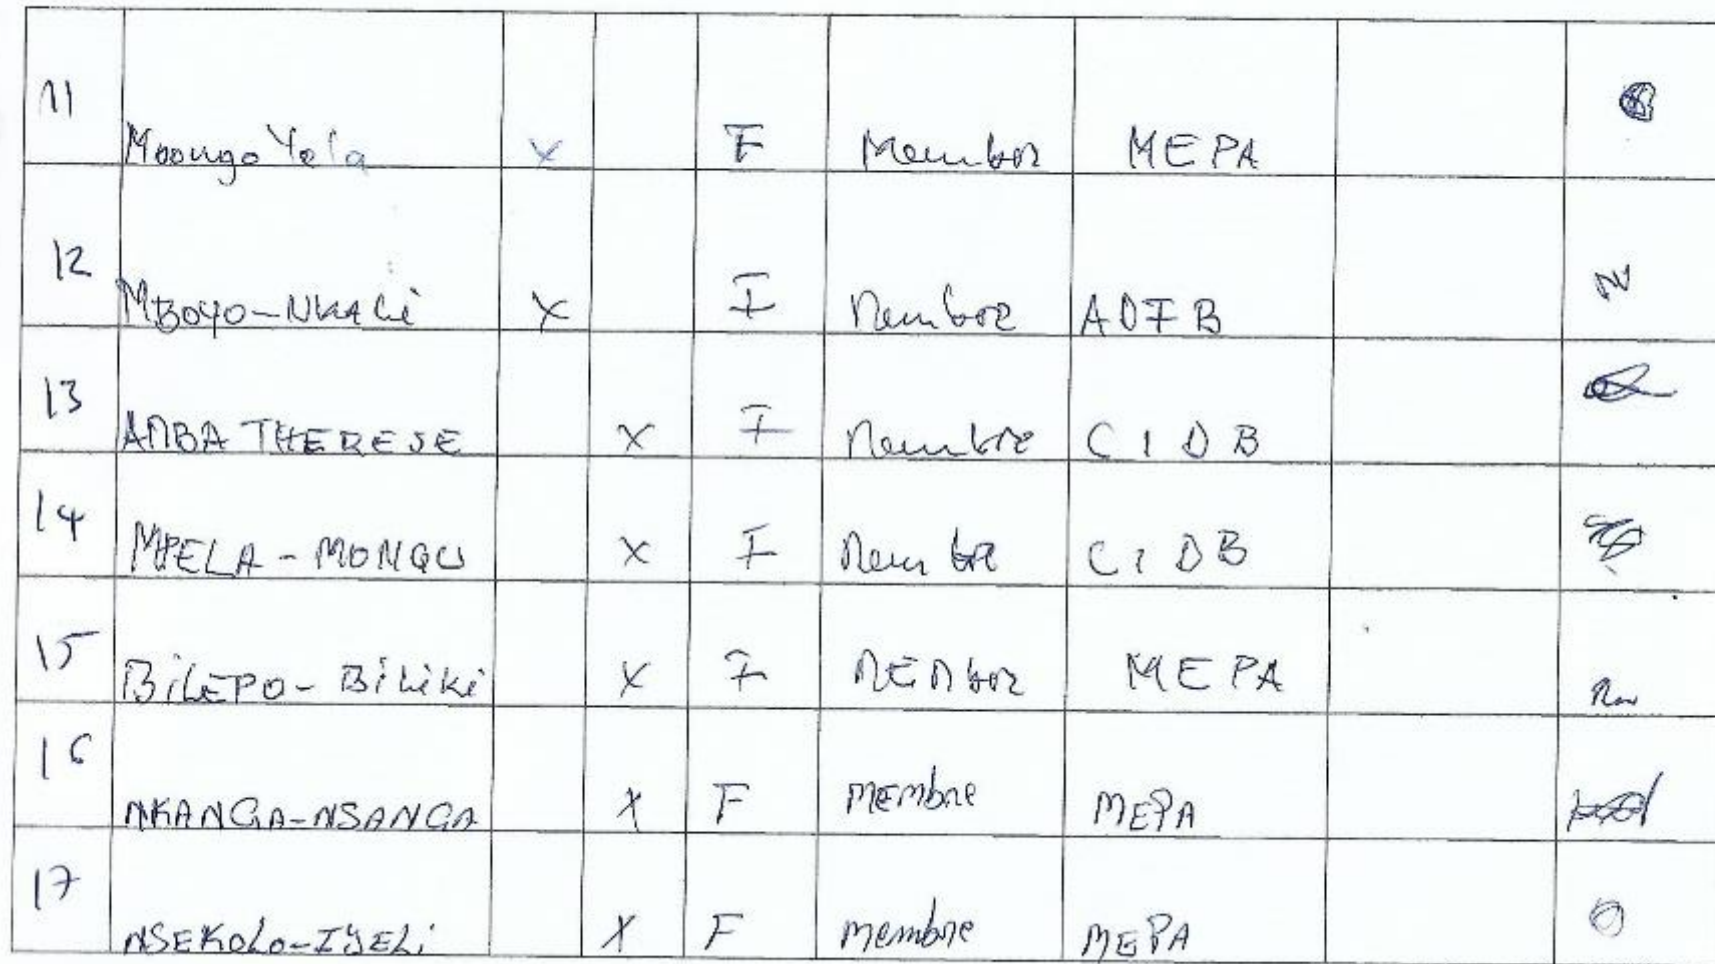 11 Mbongo Yela X F Membre MEPA
12 MBOYO-NKALI X F Membre ADFB
13 AMBA THERESE X F Membre CIDB
14 MPELA-MONGU X F Membre CIDB
15 BILEPO-BILIKI X F MEMbre MEPA
16 NKANGA-NSANGA X F MEMbre MEPA
17 NSEKOLO-IYELI X F membre MEPA